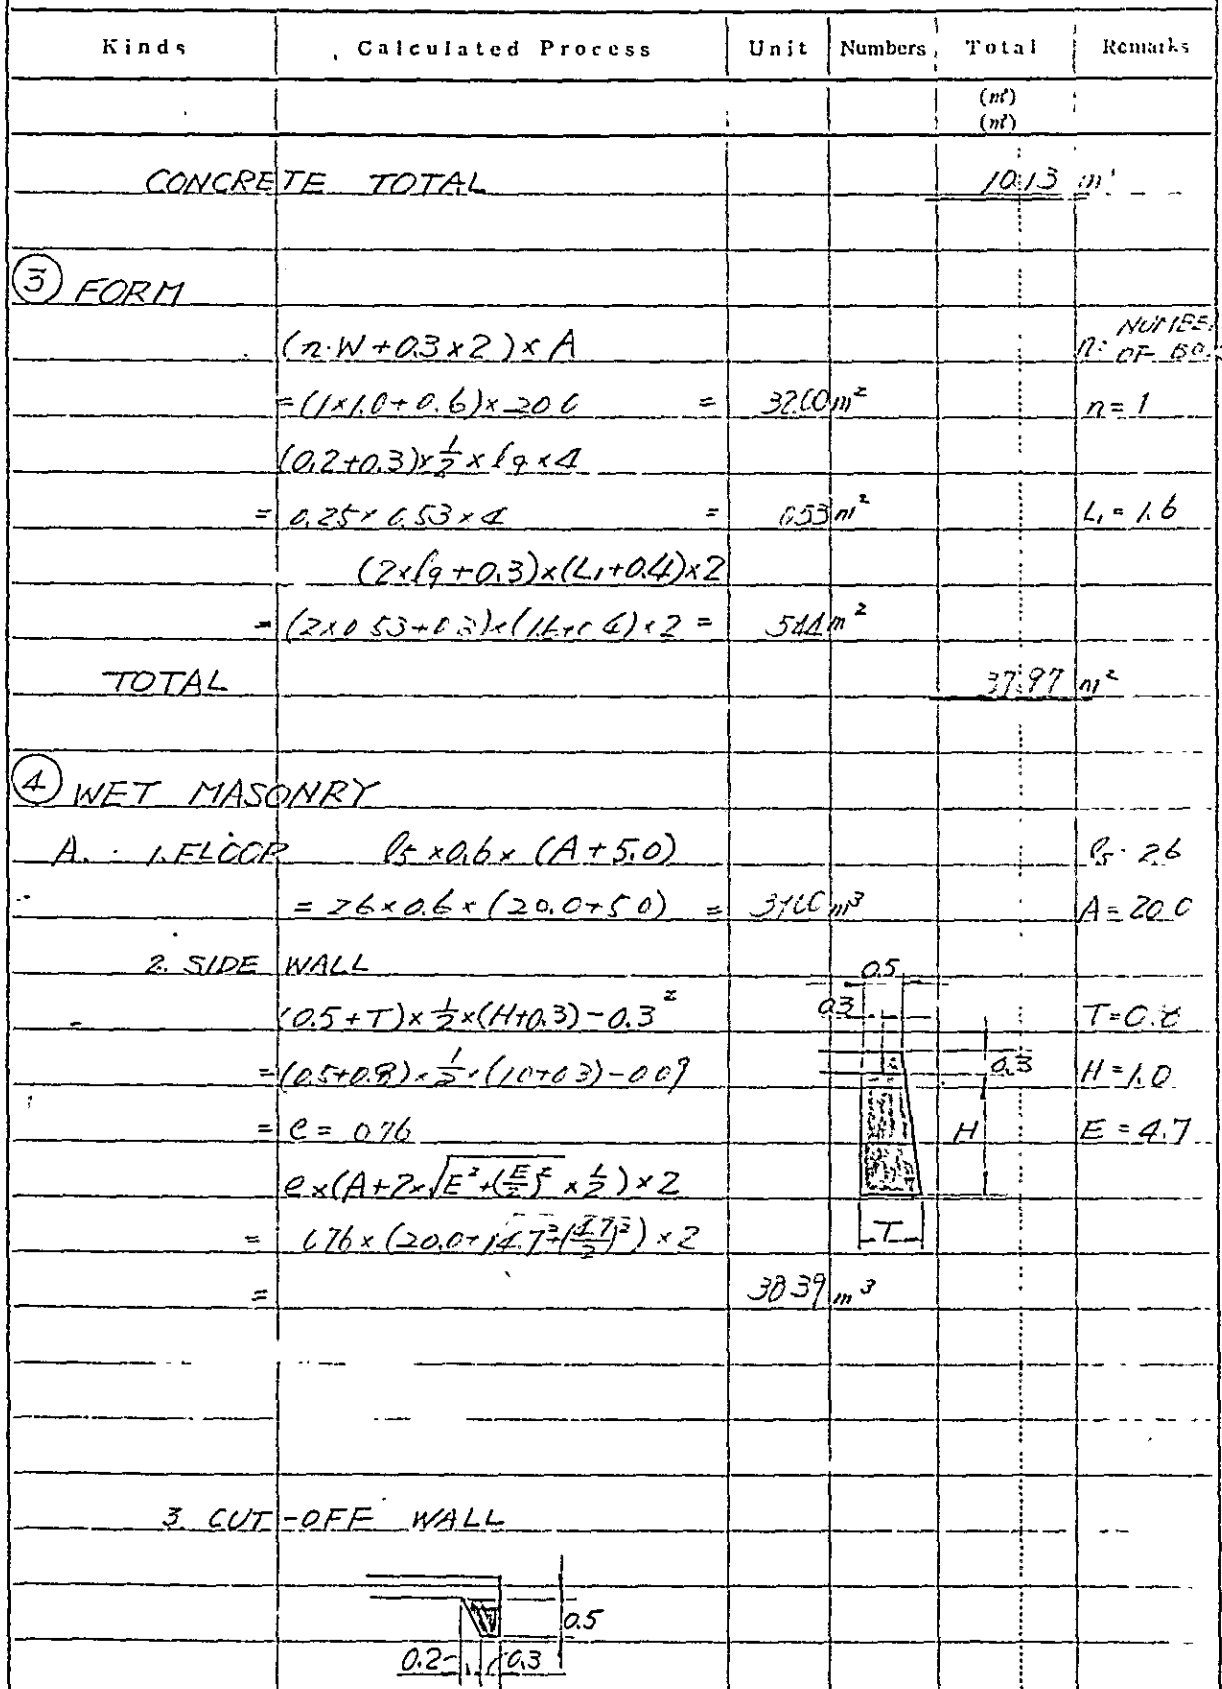 Kinds Calculated Process Unit Numbers Total Remarks
(㎡)
(㎡)
CONCRETE TOTAL 10.13 m³
③ FORM
(n·W+0.3×2)×A n: NUMBE
OF BO
=(1×1.0+0.6)×20.0 = 32.00 m² n=1
(0.2+0.3)×½×l9×4
= 0.25×0.53×4 = 0.53 m² L₁=1.6
(2×l9+0.3)×(L₁+0.4)×2
= (2×0.53+0.3)×(1.6+0.4)×2 = 5.44 m²
TOTAL 37.97 m²
④ WET MASONRY
A. 1. FLOOR l5×0.6×(A+5.0) l5=2.6
= 2.6×0.6×(20.0+5.0) = m³ A=20.0
2. SIDE WALL 0.5
(0.5+T)×½×(H+0.3)-0.3² 0.3 T=0.8
=(0.5+0.8)×½×(1.0+0.3)-0.09 0.3 H=1.0
= e = 0.76 H E=4.7
e×(A+2×√E²+(E/2)²×½)×2
= 0.76×(20.0+√4.7²+(4.7/2)²)×2 T
= 38.39 m³
3. CUT-OFF WALL
0.5
0.2 0.3